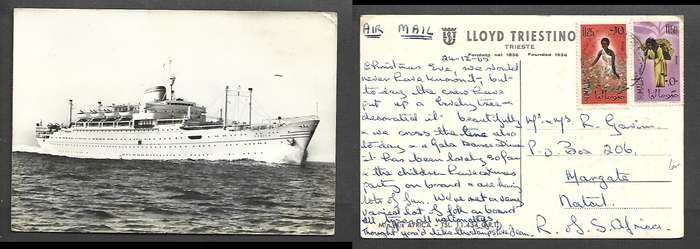 AIR MAIL
LLOYD TRIESTINO
TRIESTE
Fondato nel 1836 Founded 1836
24-12-65
Christmas Eve, we would
never have known it, but
to-day the crew have
put up a lovely tree &
decorated it beautifully
we cross the line also
to-day & a Gala Dance
it has been lovely so far
& the children have a
party on board & are having
lots of fun. We've met a very
varied lot of folk on board
all types all nationalities
Thought you'd like the stamps love Jean.
M/N AFRICA - TSL (11.434 G.R.T.)
Mr & Mrs R. Gavin
P.O. Box 206,
Margate
Natal.
R. of S. Africa.